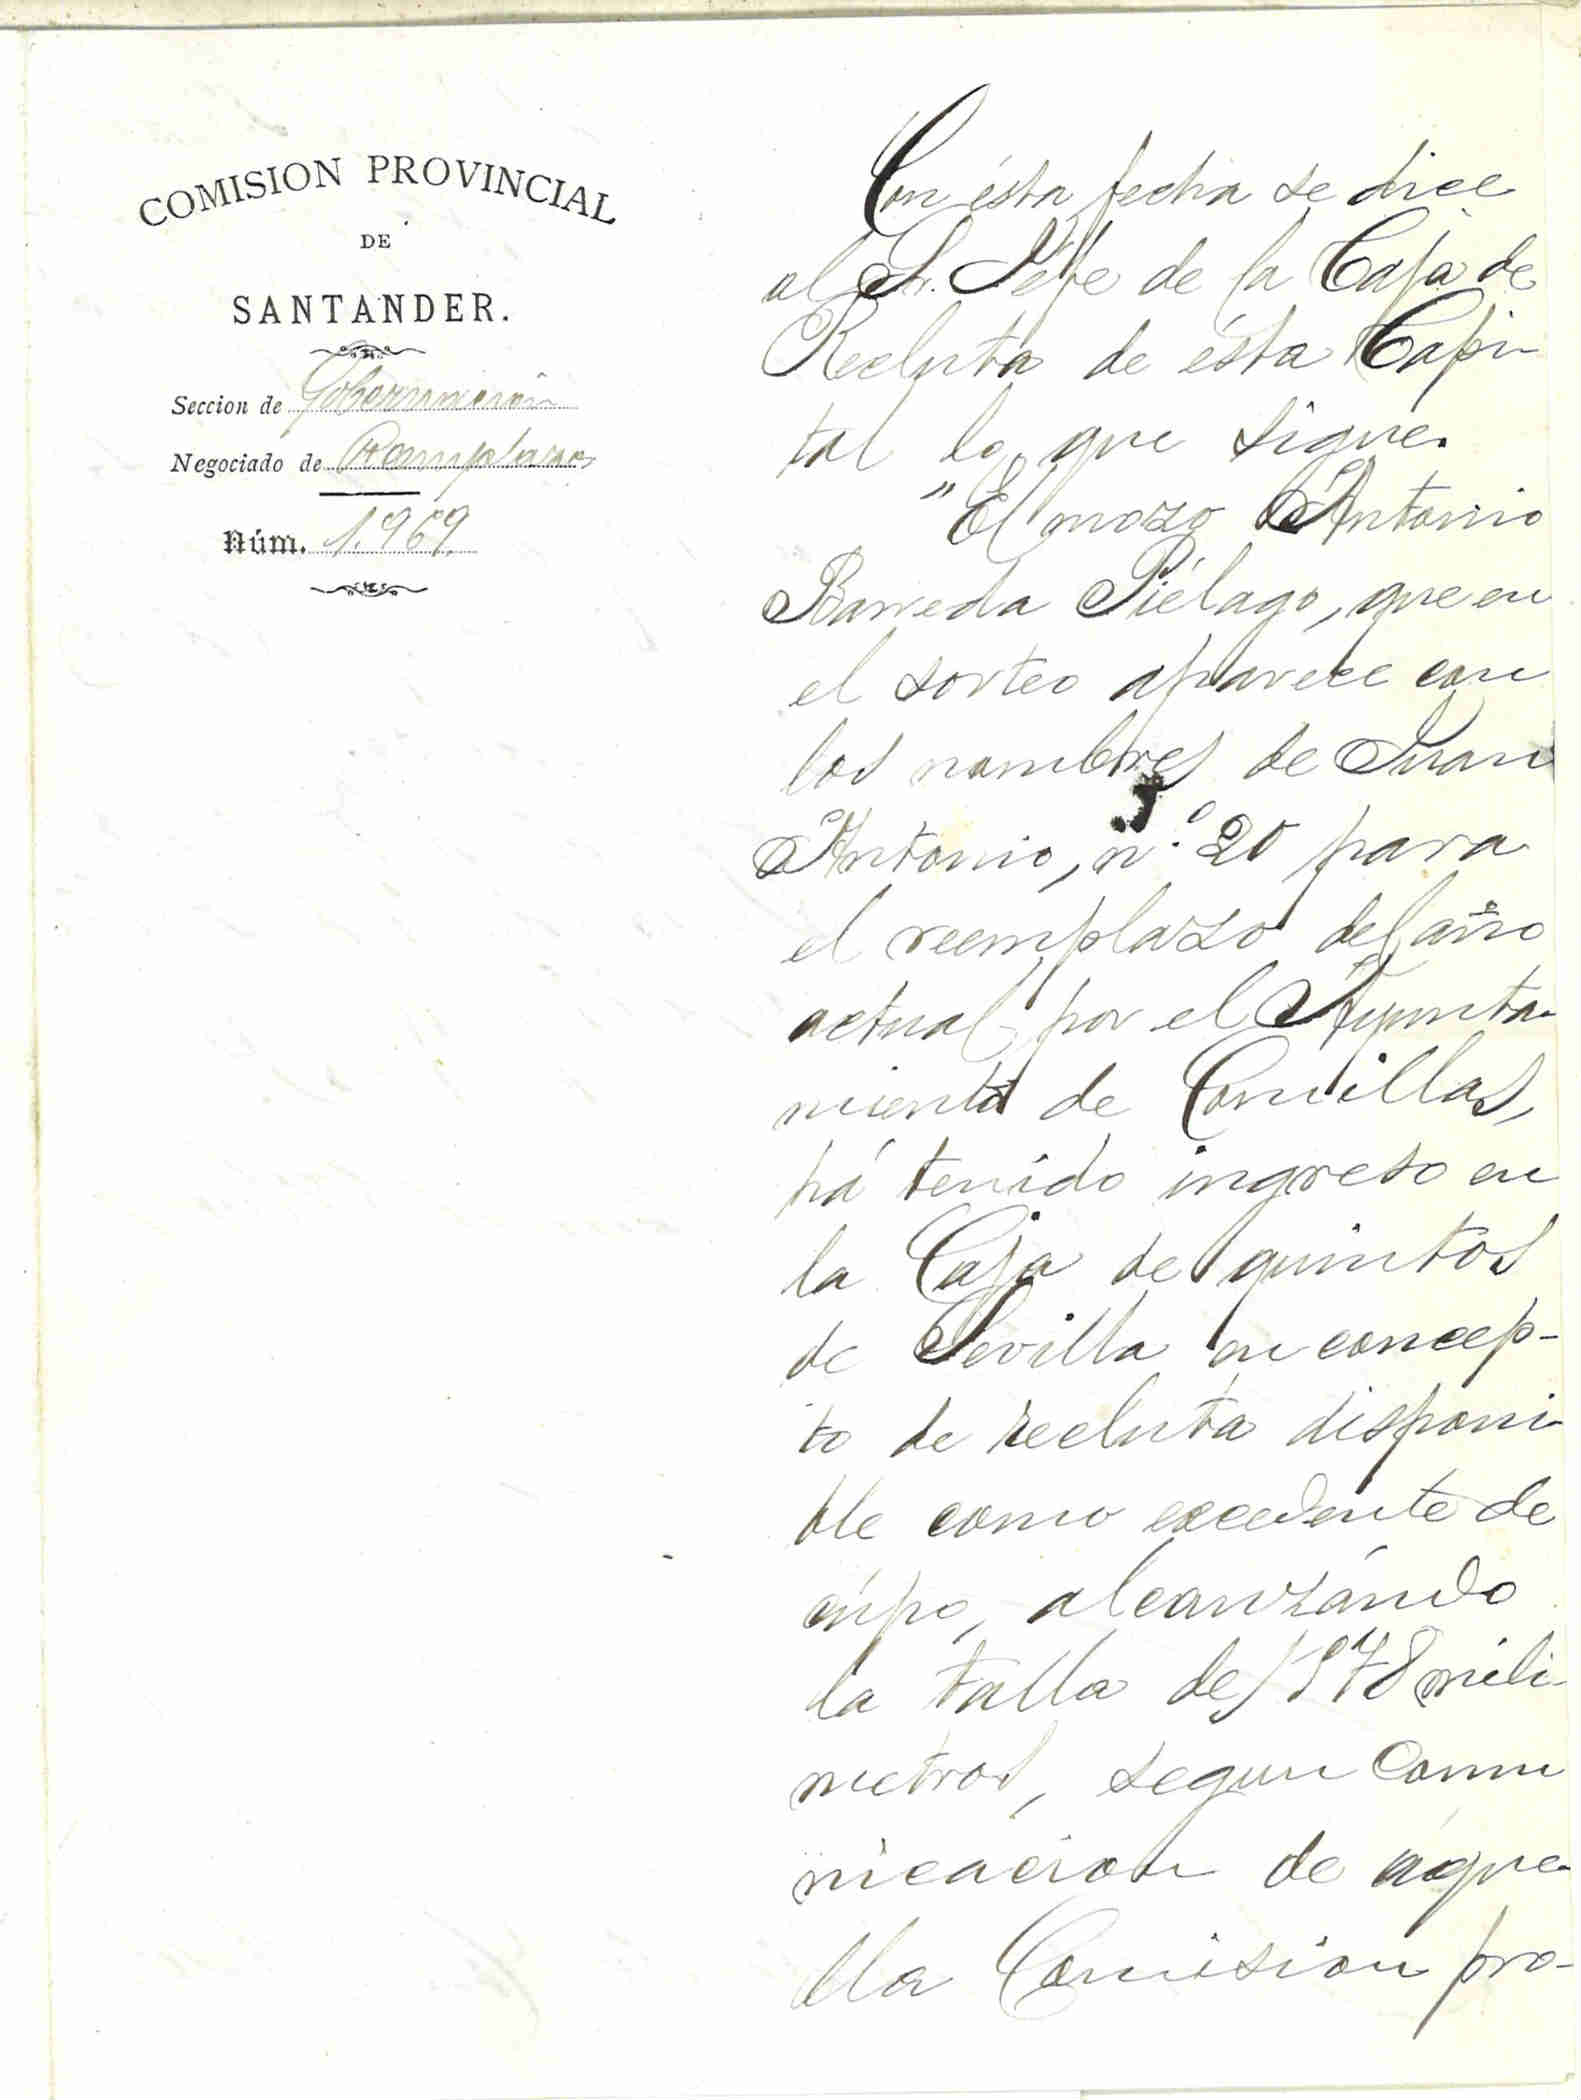 COMISION PROVINCIAL
DE
SANTANDER.
Seccion de Gobernacion
Negociado de Reemplazos
Núm. 1.969.
Con ésta fecha se dice
al Sr. Jefe de la Caja de
Recluta de ésta Capi-
tal lo que sigue.
"El mozo Antonio
Barreda Piélago, que en
el sorteo aparece con
los nombres de Juan
Antonio, n.º 20 para
el reemplazo del año
actual por el Ayunta-
miento de Comillas,
há tenido ingreso en
la Caja de quintos
de Sevilla en concep-
to de recluta disponi-
ble como excedente de
cúpo, alcanzándo
la talla de 1578 mili-
metros, segun comu
nicacion de aque-
lla Comision pro-